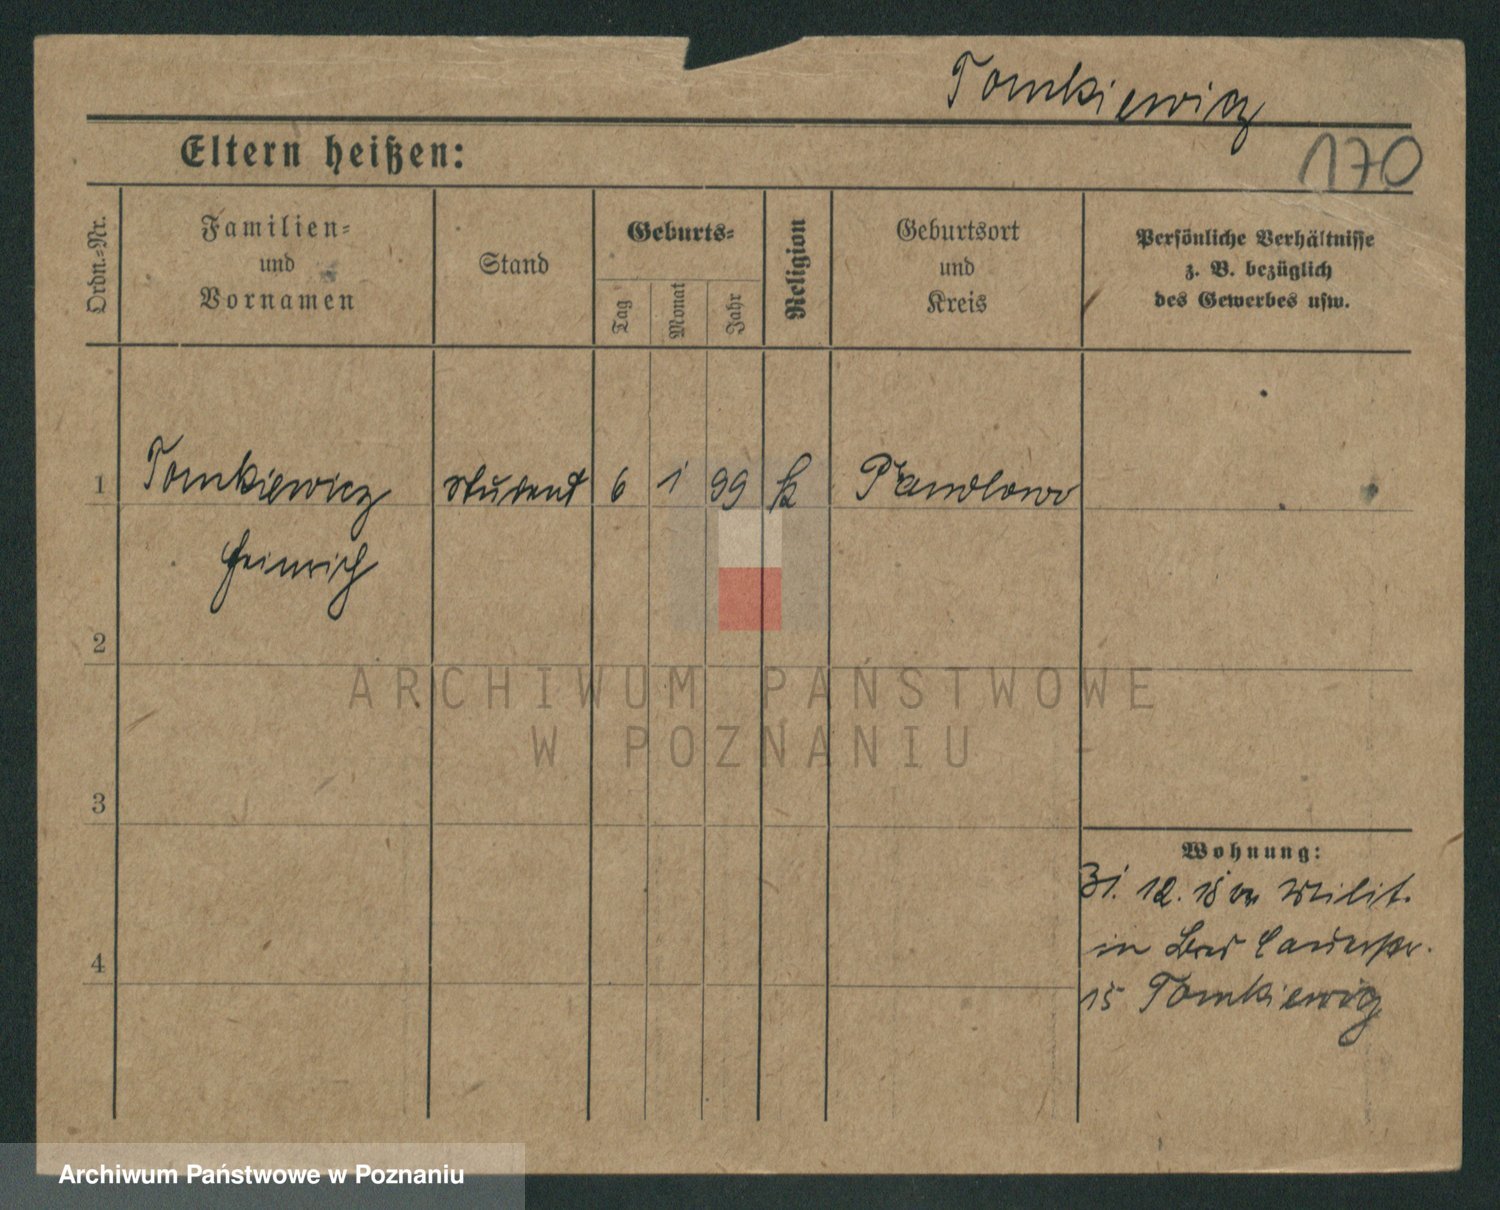 Tomkiewicz
Eltern heißen:
170
Ordn.-Nr.
Familien-
und
Vornamen
Stand
Geburts-
Tag
Monat
Jahr
Religion
Geburtsort
und
Kreis
Persönliche Verhältnisse
z. B. bezüglich
des Gewerbes usw.
1 Tomkiewicz student 6 1 99 k
Heinrich
2
3
4
Wohnung:
31. 12. 18 Milit.
in
15 Tomkiewicz
ARCHIWUM PAŃSTWOWE
W POZNANIU -
Archiwum Państwowe w Poznaniu